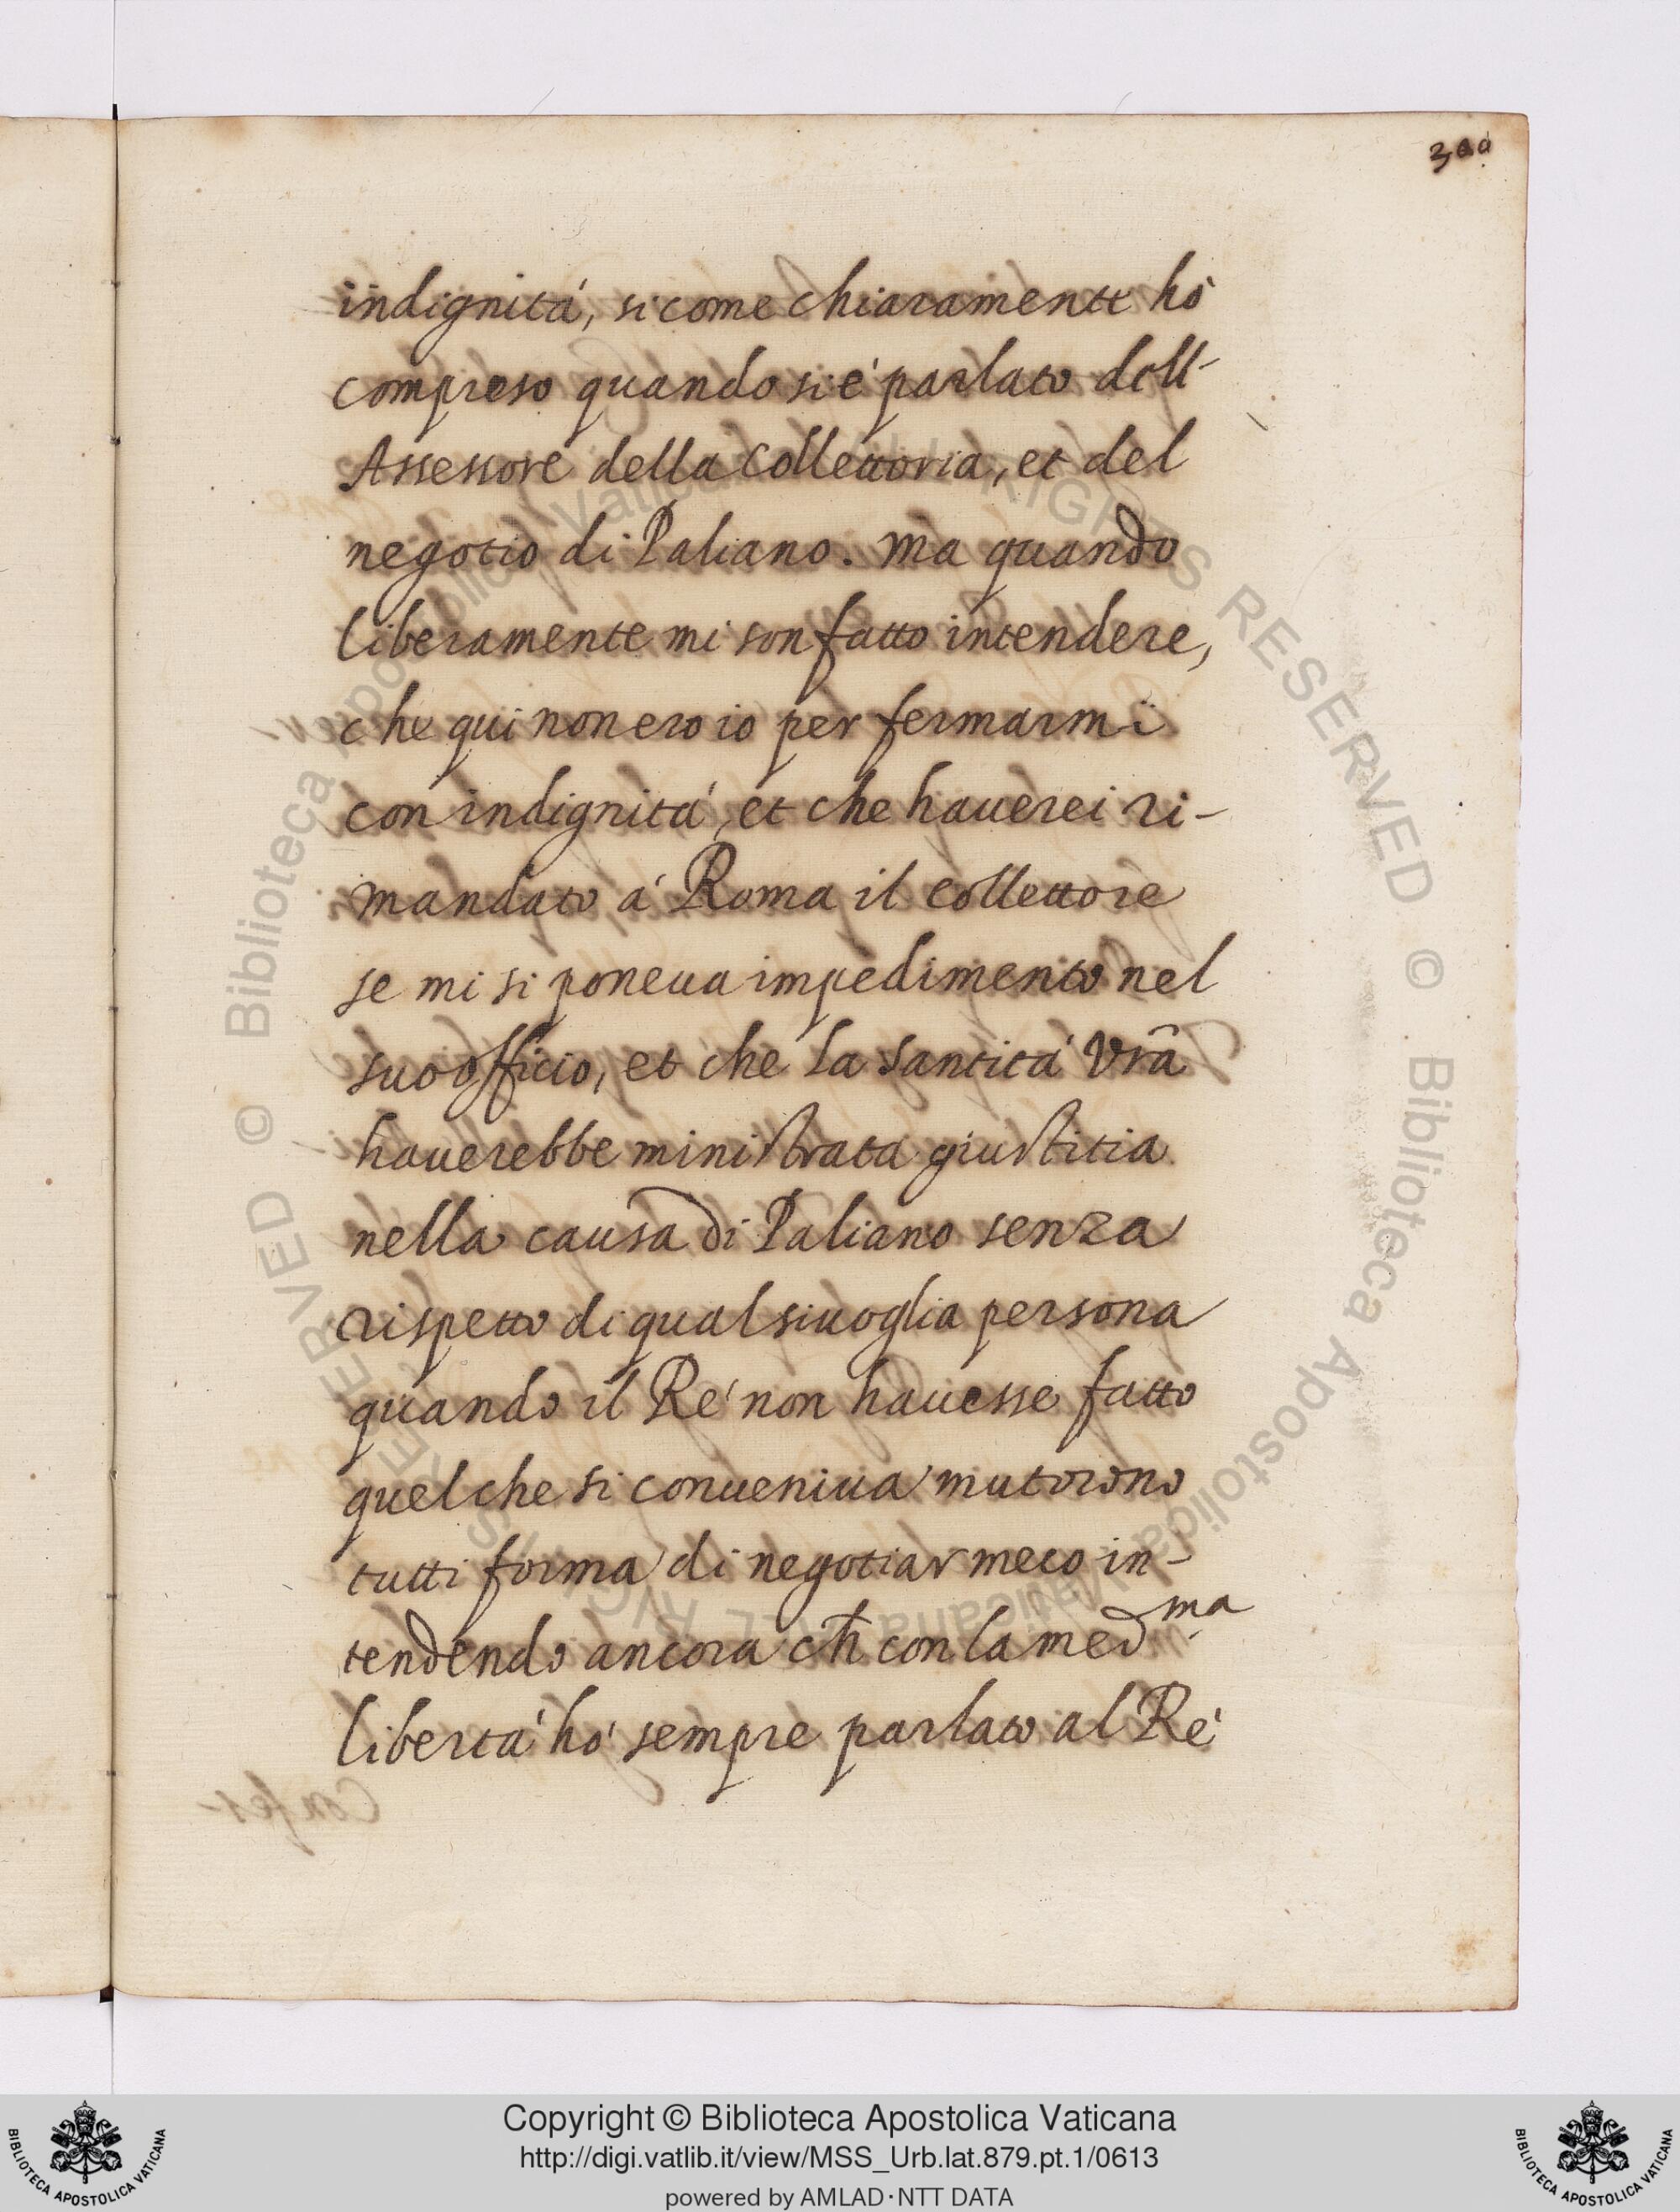 300
indignitá, si come chiaramente hó
compreso quando si é parlato dell-
Assessore della Collettoria, et del
negotio di Paliano. Ma quando
liberamente mi son fatto intendere,
che qui non ero io per fermarmi
con indignitá, et che hauerei ri-
mandato á Roma il Collettore
se mi si poneua impedimento nel
suo officio, et che la Santitá Vrã
hauerebbe ministrata giustitia
nella causa di Paliano senza
rispetto di qual si uoglia persona
quando il Ré non hauesse fatto
quel che si conueniua mutorono
tutti forma di negotiar meco in-
tendendo ancora ch̃ con la med.ma
libertá hó sempre parlato al Ré
Copyright © Biblioteca Apostolica Vaticana
http://digi.vatlib.it/view/MSS_Urb.lat.879.pt.1/0613
powered by AMLAD·NTT DATA